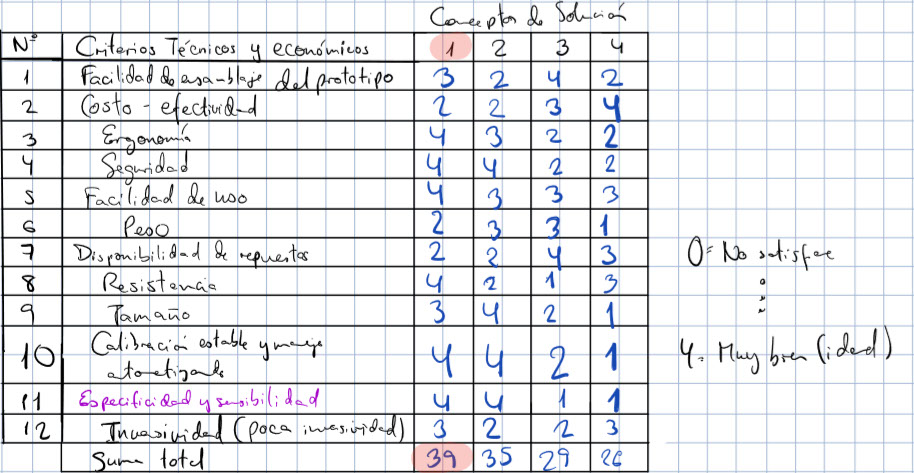 Conceptos de Solución
Nº Criterios Técnicos y económicos 1 2 3 4
1 Facilidad de ensamblaje del prototipo 3 2 4 2
2 Costo - efectividad 2 2 3 4
3 Ergonomía 4 3 2 2
4 Seguridad 4 4 2 2
5 Facilidad de uso 4 3 3 3
6 Peso 2 3 3 1
7 Disponibilidad de repuestos 2 2 4 3
8 Resistencia 4 2 1 3
9 Tamaño 3 4 2 1
10 Calibración estable y manejo
automatizado 4 4 2 1
11 Especificidad y sensibilidad 4 4 1 1
12 Invasividad (poca invasividad) 3 2 2 3
Suma total 39 35 29 26
0= No satisface
4= Muy bien (ideal)